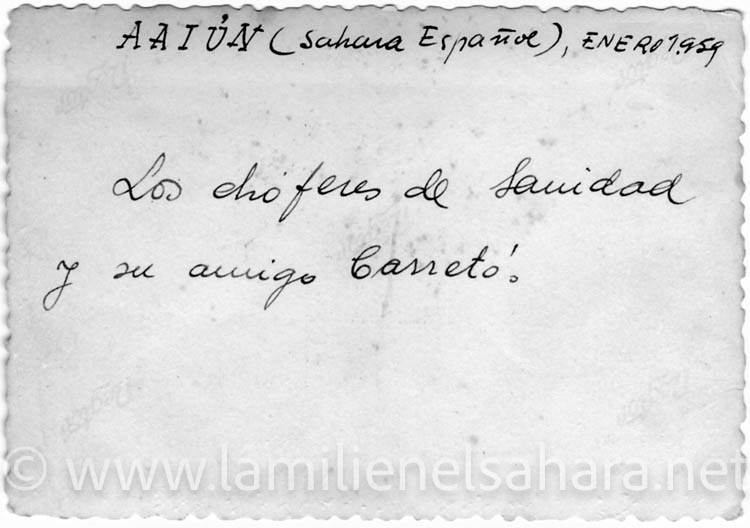 AAIÚN (Sahara Español), ENERO 1.959
Los chóferes de Sanidad
y su amigo Carretó.
© www.lamilienelsahara.net